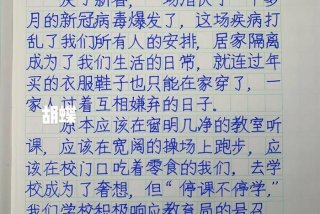 月的新冠病毒爆发了，这场疾病打
乱了我们所有人的安排，居家隔离
成为了我们生活的日常，就连过年
买的衣服鞋子也只能在家穿了，一
家人过着互相嫌弃的日子。
胡蝶
原本应该在窗明几净的教室听
课，应该在宽阔的操场上跑步，应
该在校门口吃着零食的我们，去学
校成为了奢想，但“停课不停学”，
我们学校积极响应教育局的号召